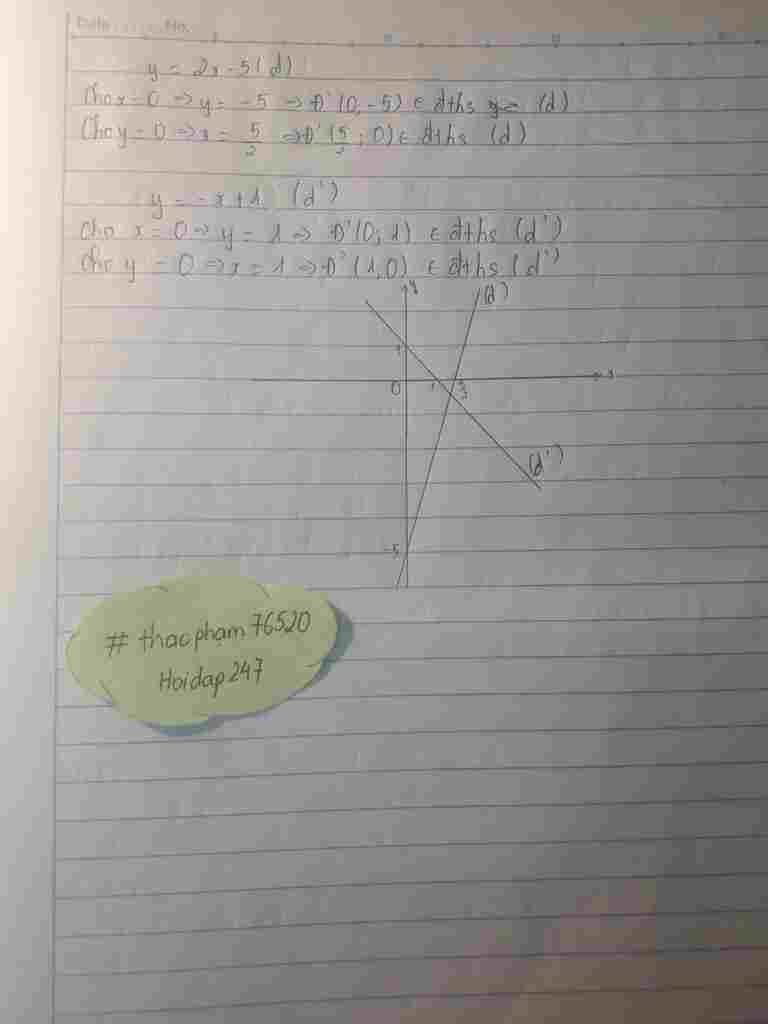 Date ........ No.
y = 2x - 5 (d)
Cho x = 0 => y = -5 => Đ'(0, -5) ∈ đths (d)
Cho y = 0 => x = 5/2 => Đ'(5/2; 0) ∈ đths (d)
y = -x + 1 (d')
Cho x = 0 => y = 1 => Đ'(0; 1) ∈ đths (d')
Cho y = 0 => x = 1 => Đ'(1, 0) ∈ đths (d')
y
(d)
1
0
1
5/2
x
(d')
-5
# thacpham 76520
Hoidap247